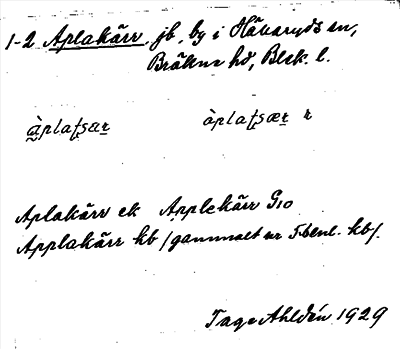 1-2 Aplakärr, jb, by i Hävaryds sn,
Bräkne hd, Blek. l.
àplaʈʂær àplaʈʂær r
Aplakärr ek Applekärr G10
Applakärr kb /gammalt nr 5 benl. kb/.
Tage Ahldén 1929